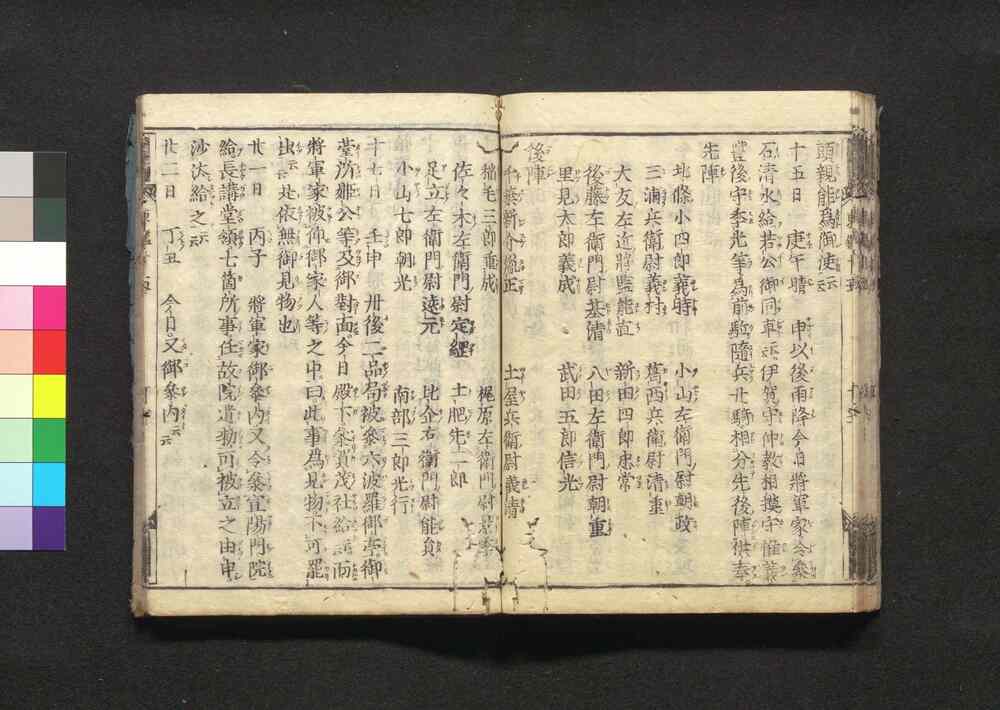 頭親能爲御使云云
十五日　庚午晴　申以後雨降今日將軍家令參
石清水給若公御同車云云伊賀守仲教相摸守惟義
豐後守季光等爲前駈隨兵廿騎相分先後陣供奉
先陣
北條小四郎義時　小山左衛門尉朝政
三浦兵衛尉義村　葛西兵衛尉清重
大友左近將監能直　新田四郎忠常
後藤左衛門尉基清　八田左衛門尉朝重
里見太郎義成　武田五郎信光
後陣
千葉新介胤正　土屋兵衛尉義清
稲毛三郎重成　梶原左衛門尉景季
佐々木左衛門尉定經　土肥先二郎
足立左衛門尉遠元　比企右衛門尉能員
小山七郎朝光　南部三郎光行
十七日　壬申　丹後二品局被參六波羅御亭御
臺所姫公等及御對面今日殿下參賀茂社給而
將軍家被仰御家人等之中曰此事爲見物不可罷
出云云是依無御見物也
廿一日　丙子　將軍家御參内又令參宣陽門院
給長講堂領七箇所事任故院遺勅可被立之由申
沙汰給之云云
廿二日　丁丑　今日又御參内云云